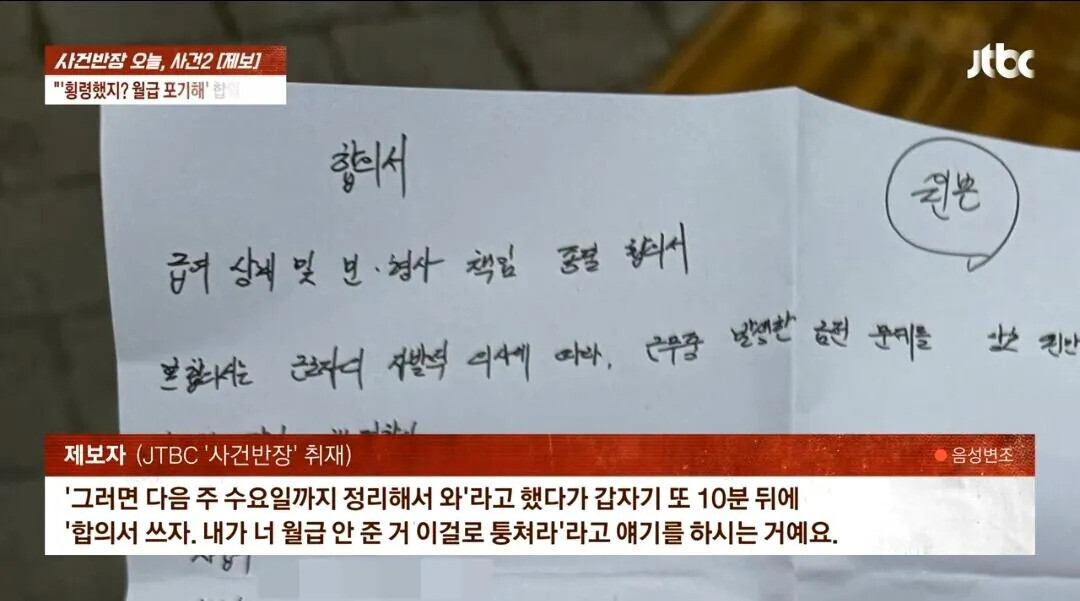 사건반장 오늘, 사건2 [제보]
"'횡령했지? 월급 포기해' 합의
jtbc
합의서
원본
급여 상계 및 민·형사 책임 종결 합의서
본 합의서는 근로자의 자발적 의사에 따라, 근무중 발생한 금전 문제를 상호 원만
제보자 (JTBC '사건반장' 취재)
음성변조
'그러면 다음 주 수요일까지 정리해서 와'라고 했다가 갑자기 또 10분 뒤에
'합의서 쓰자. 내가 너 월급 안 준 거 이걸로 퉁쳐라'라고 얘기를 하시는 거예요.